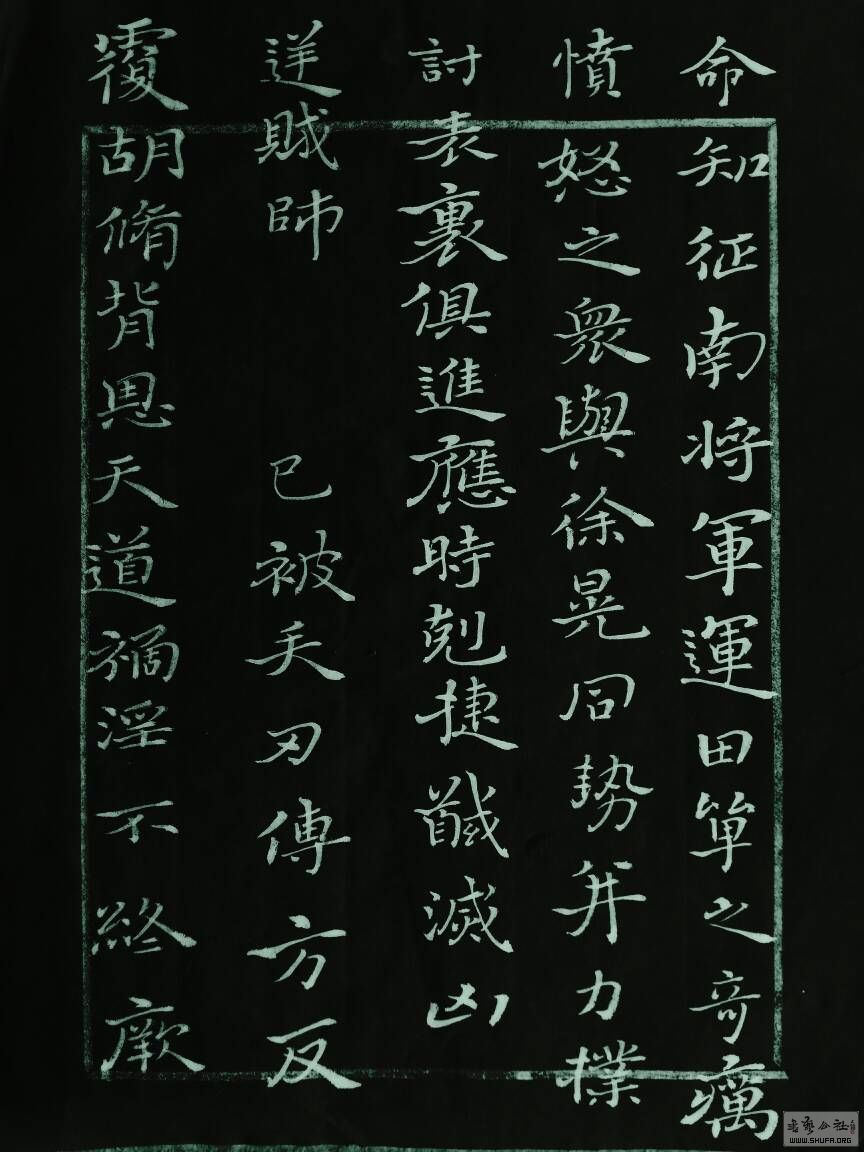 命知征南将軍運田單之奇厲
憤怒之衆與徐晃同勢并力撲
討表裏俱進應時剋捷馘滅凶
逆賊帥 已被矢刃傅方反
覆胡脩背恩天道禍淫不終厥
書藝公社
WWW.SHUFA.ORG